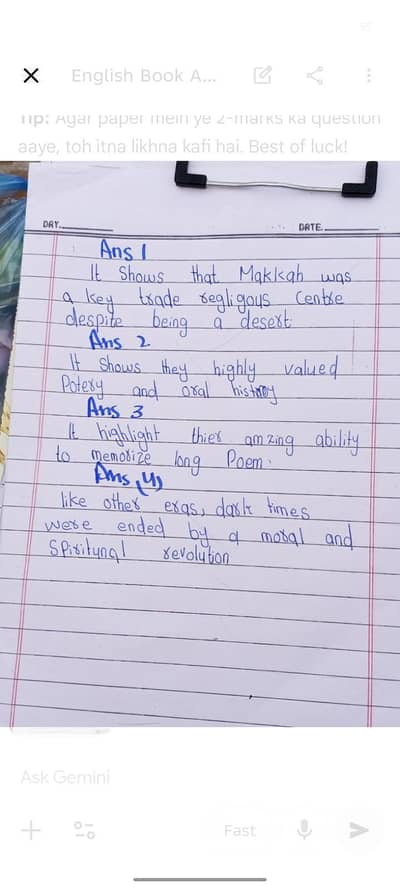 English Book A...
Tip: Agar paper mein ye 2-marks ka question
aaye, toh itna likhna kafi hai. Best of luck!
DAY.
DATE.
Ans 1
It Shows that Makkah was
a key trade regligous Centre
despite being a desert
Ans 2
It Shows they highly valued
Potery and oral history
Ans 3
It highlight thier amzing ability
to memorize long Poem.
Ans (4)
like other eras, dark times
were ended by a moral and
Spiritunal revolution
Ask Gemini
Fast